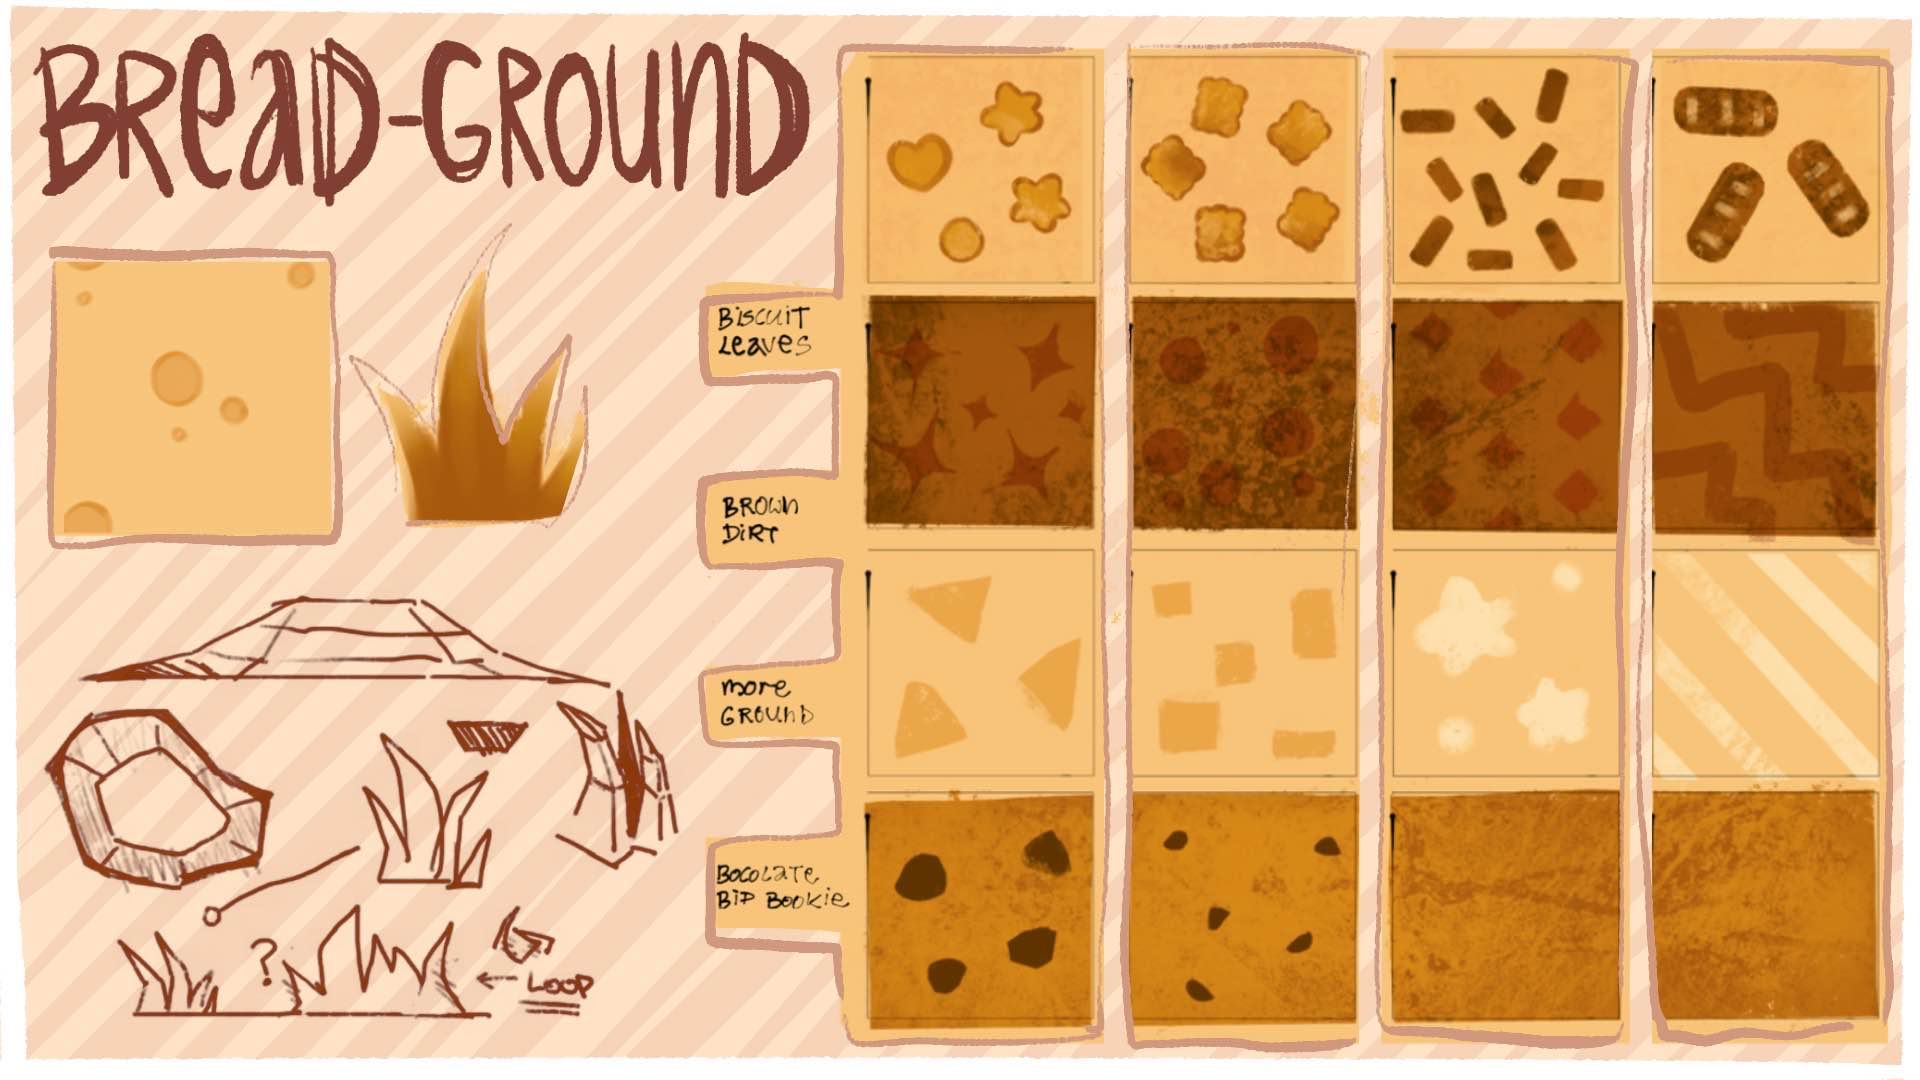 BReaD-GROUnD
BiscuiT
Leaves
BROWn
DiRT
more
GROUnD
BOCOLaTe
BiP BOOKie
?
← LOOP